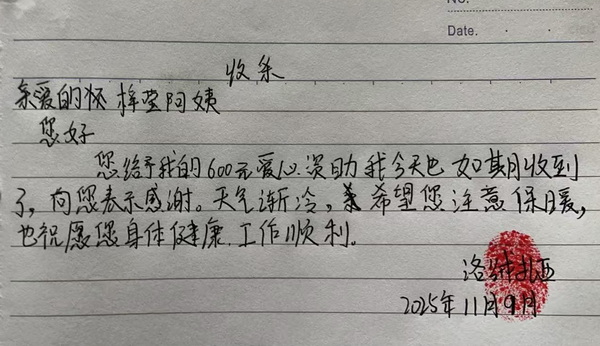 No.
Date.
收条
亲爱的怀梓莹阿姨
您好
您给予我的600元爱心资助我今天也如期收到
了,向您表示感谢。天气渐冷,希望您注意保暖,
也祝愿您身体健康.工作顺利。
洛绒扎西
2025年11月9月